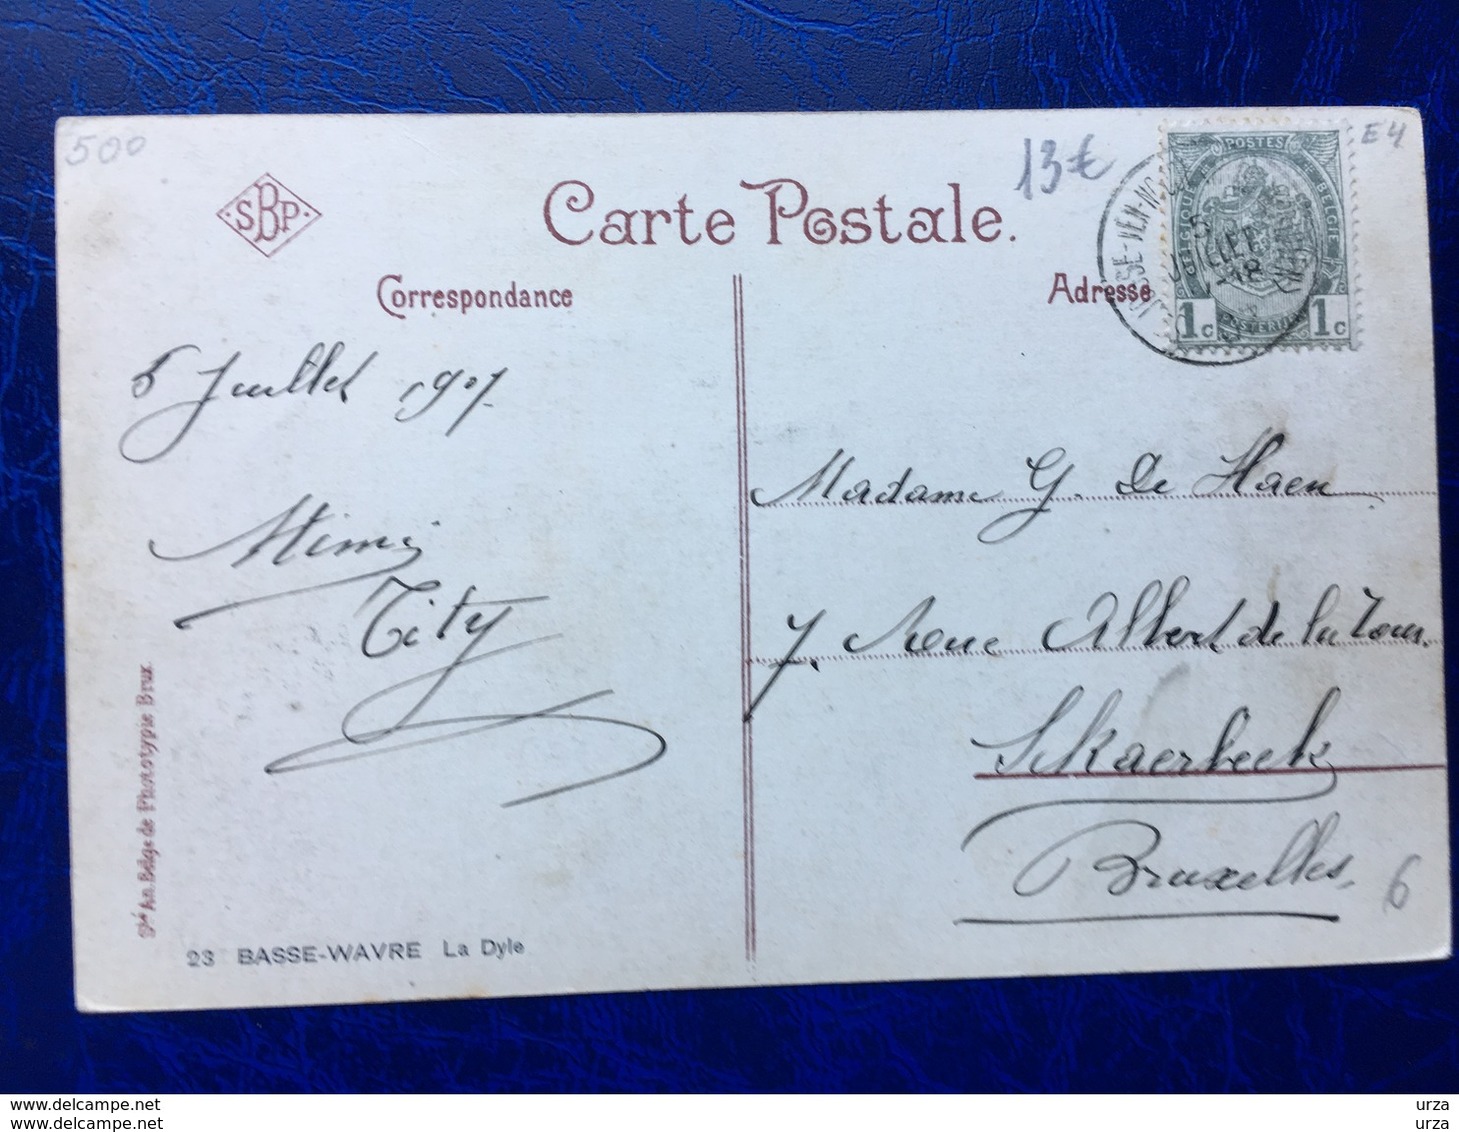 500
13€
E4
SBP
Carte Postale.
POSTES
BELGIQUE
BELGIË
1c
1c
Correspondance
Adresse
5 Juillet 1907
Mimi
Tity
Madame G. De Haen
7. Rue Albert de la Tour.
Skaerbeek
Bruxelles.
6
Sté An. Belge de Phototypie Brux.
23 BASSE-WAVRE La Dyle
www.delcampe.net
www.delcampe.net
urza
urza